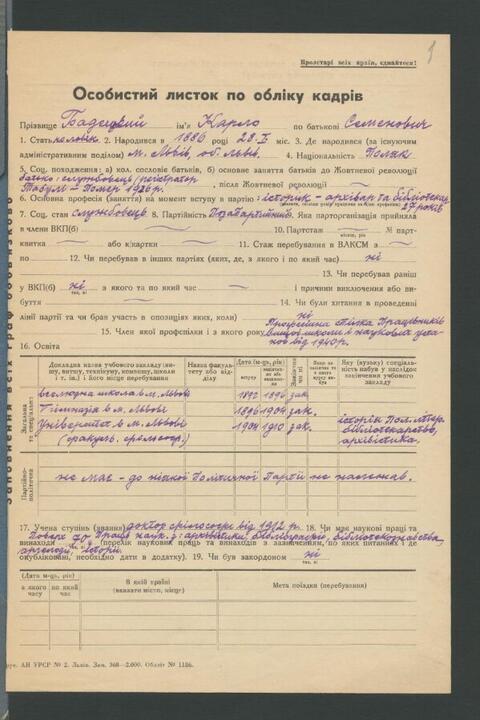 Пролетарі всіх країн, єднайтеся!
Особистий листок по обліку кадрів
Прізвище Бадецький ім'я Кароль по батькові Семенович
1. Стать чоловік 2. Народився в 1886 році 28.I міс. 3. Де народився (за існуючим
адміністративним поділом) м. Львів, обл. Львів. 4. Національність Поляк
5. Соц. походження: а) кол. сословіє батьків, б) основне заняття батьків до Жовтневої революції
батько: службовець/реєстратор
Табулі – помер 1926 р. , після Жовтневої революції —
6. Основна професія (заняття) на момент вступу в партію історик-архівар та бібліотекар
27 років
7. Соц. стан службовець 8. Партійність Позапартійний 9. Яка парторганізація прийняла
в члени ВКП(б) — 10. Партстаж — № парт-
місяць, рік
квитка — або к/картки — 11. Стаж перебування в ВЛКСМ з —
по — 12. Чи перебував в інших партіях (яких, де, з якого і по який час) ні
13. Чи перебував раніш
у ВКП(б) ні з якого та по який час — і причини виключення або ви-
так, ні
буття — 14. Чи були хитання в проведенні
лінії партії та чи брав участь в опозиціях яких, коли) ні
15. Член якої профспілки і з якого року Професійна спілка Працівників
Вищої школи і наукових уста-
нов від 1940 р.
16. Освіта
Докладна назва учбового закладу (ви-вишу, витушу, технікуму, комвишу, школи і т. ін.) і його місце перебування
Назва факуль-тету або від-ділу
Дата (м-ць, рік)
вступу
закінчення або вибуття
Закінчив чи ні
Якщо не закінчив то з якого курсу вибув
Яку (вузьку) спеціаль-ність набув у наслідок закінчення учбового закладу
Загальна та спеціальна
Вселюдна школа в м. Львові 1892 1896 зак.
Гімназія в м. Львові 1896 1904 зак.
Університет в м. Львові 1904 1910 зак. історія пол. літер.
(факульт. філософ.) бібліотекарство,
архівістика.
Партійно-політична
не має – до ніякої Політичної Партії не належав.
17. Учена ступінь (звання) доктор філософії від 1912 р. 18. Чи має наукові праці та
винаходи Поверх 70 Праць наук. з: архівістики, бібліографії, бібліотекознавства,
(перелік наукових праць та винаходів з зазначенням, по яких питаннях і де
опубліковані, необхідно дати в додатку). 19. Чи був закордоном ні
так, ні
(Дата м-ць, рік)
з якого часу
по який час
В якій країні
(вказати місто, місце)
Мета поїздки (перебування)
Друк. АН УРСР № 2. Львів. Зам. 368—2.000. Обліт № 1186.